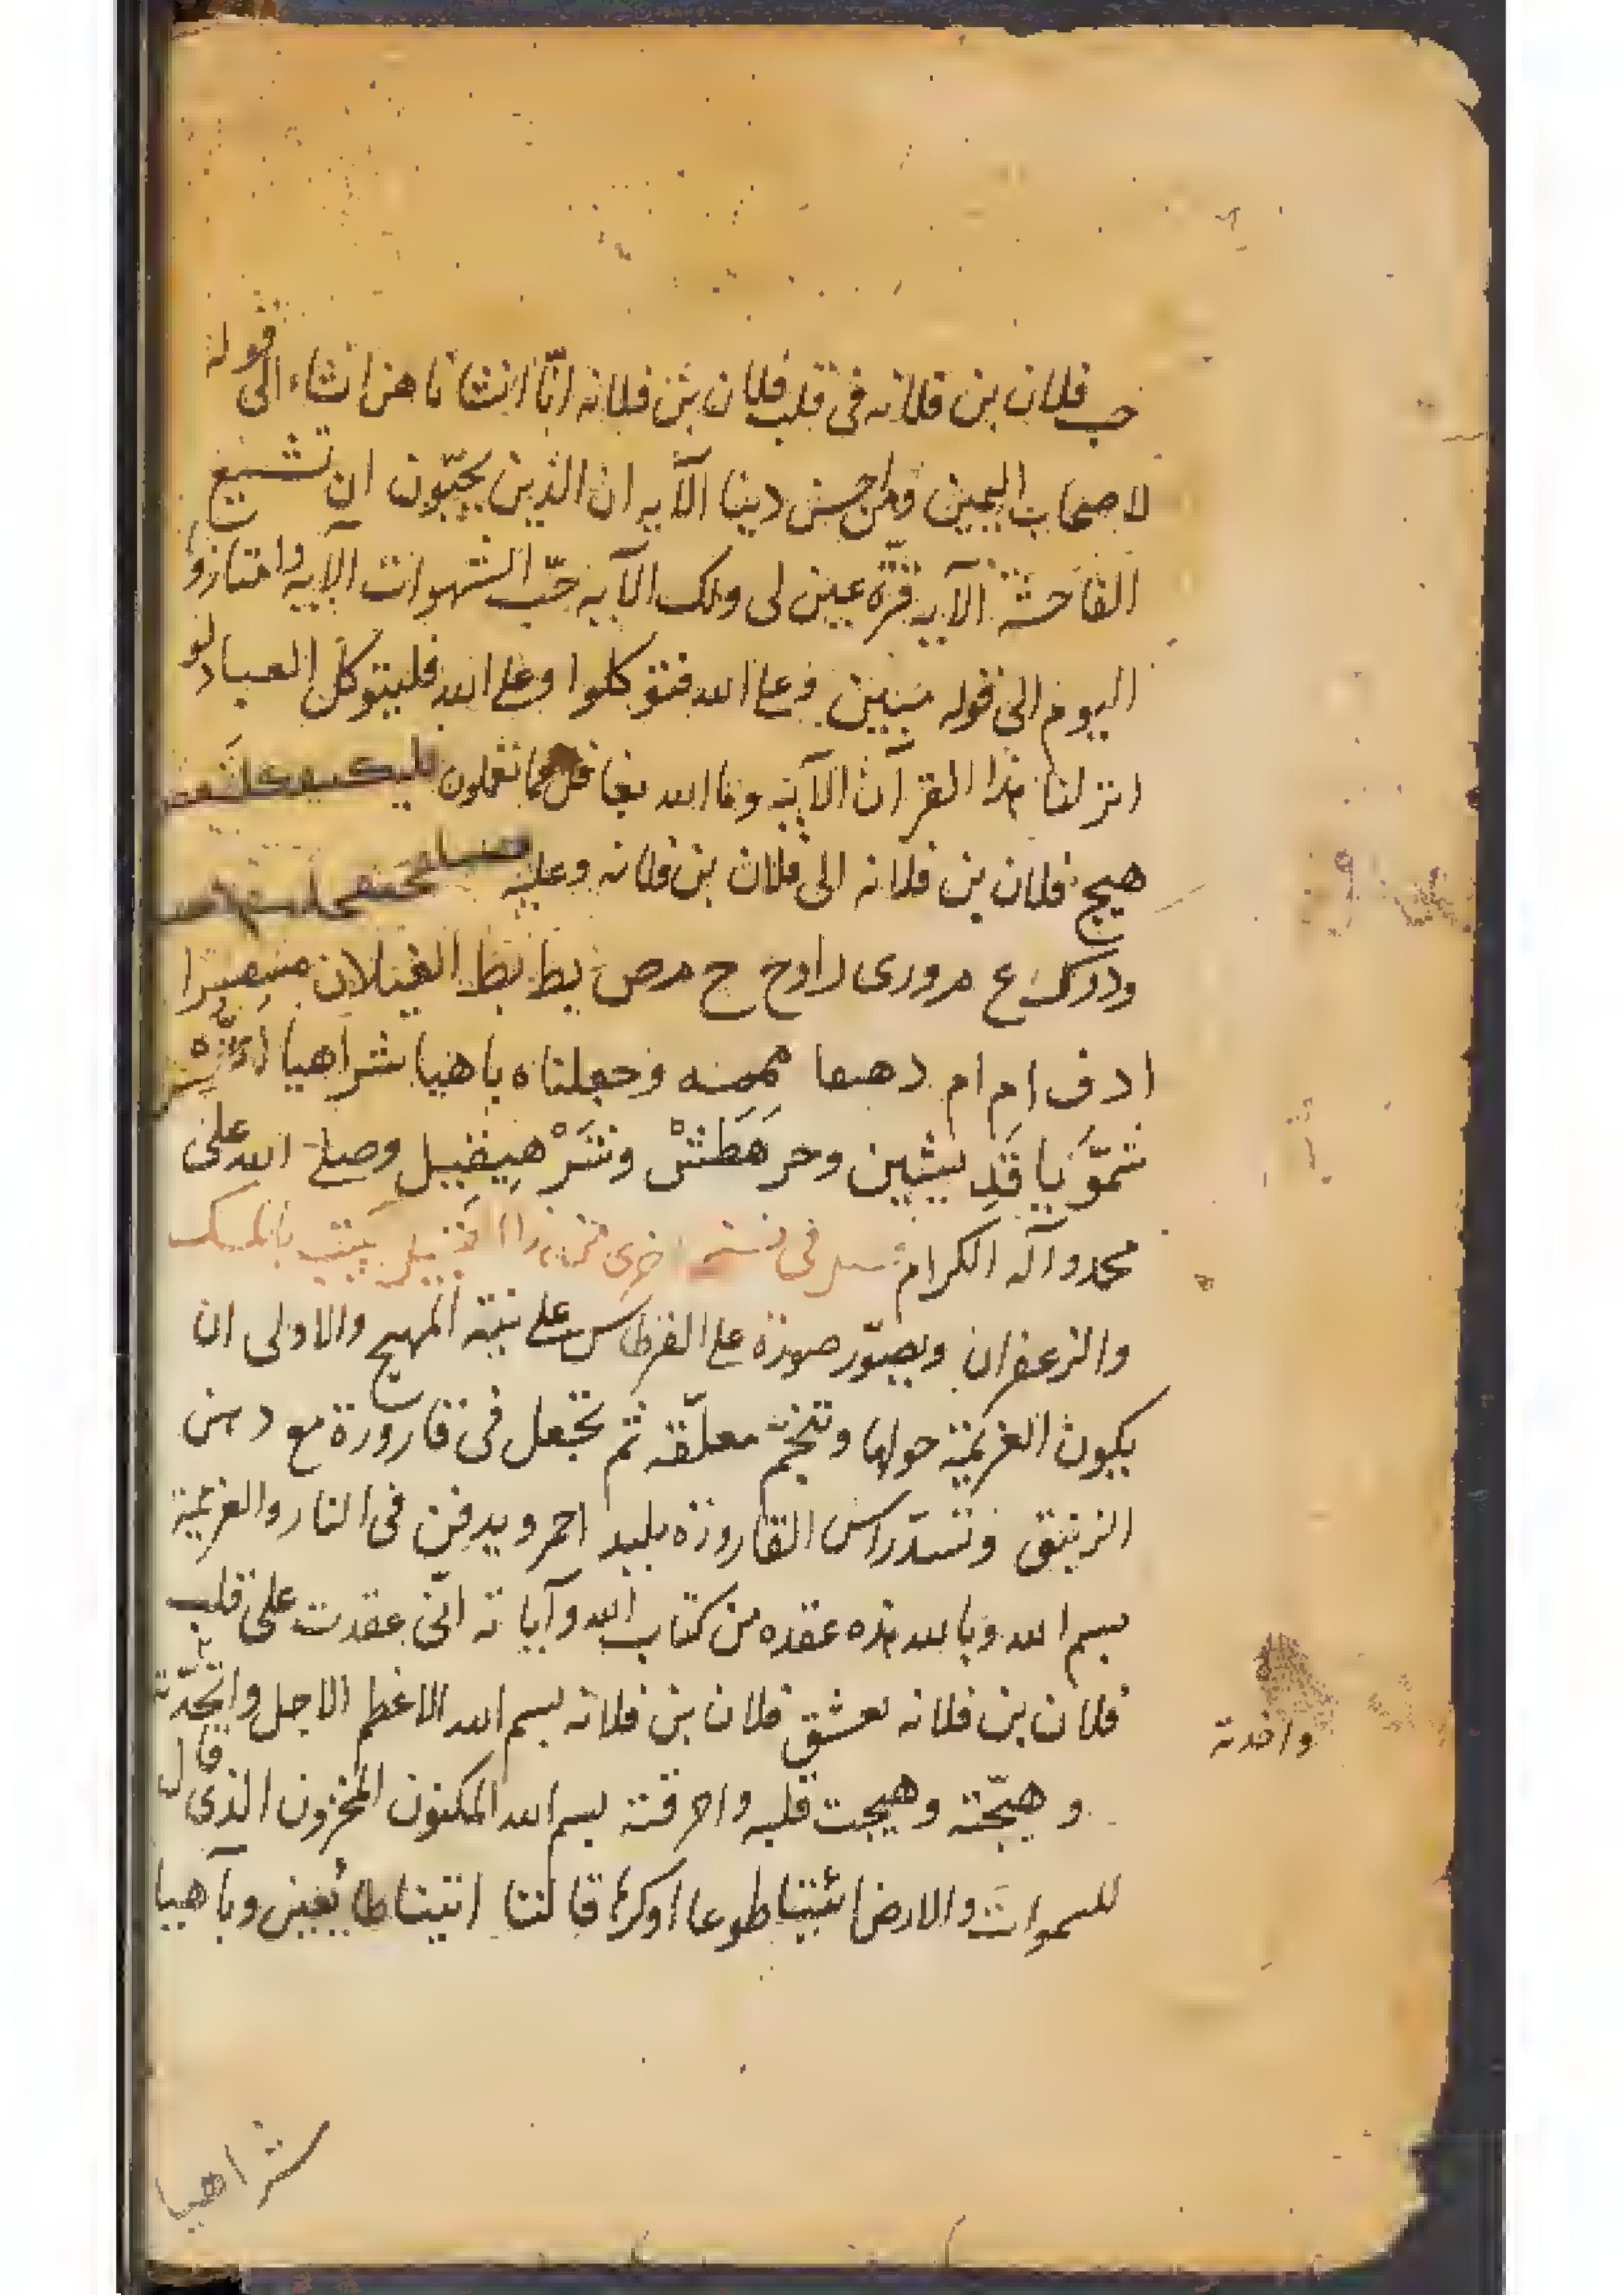 حب فلان بن فلانه فى قلب فلان بن فلانه انّا انشأناهن انشاء الى قوله
لاصحاب اليمين ومن احسن دينا الآيه ان الذين يحبّون ان تشيع
الفاحشة الآيه قرّة عين لى ولك الآيه حبّ الشهوات الآيه وامتازوا
اليوم الى قوله مبين وعلى الله فتوكلوا وعلى الله فليتوكل العباد لو
انزلنا هذا القرآن الآيه وما الله بغافل عما تعملون
هيج فلان بن فلانه الى فلان بن فلانه وعليه
ودرك ع مرورى راوح ح مرص بط بط الغيلان
ادف ام ام وجعلناه ياهيا شراهيا
وصلى الله على
محمد وآله الكرام فى اخرى يكتب بالمسك
والزعفران ويصوّر صورة على القرطاس على نيّة المهيج والاولى ان
يكون العزيمة حولها وتنجم معلّقه ثم تجعل فى قارورة مع دهن
الزيبق وتسدّ راس القارورة بلبد احمر ويدفن فى النار والعزيمة
بسم الله وبالله هذه عقده من كتاب الله وآياته انّى عقدت على قلب
فلان بن فلانه بعشق فلان بن فلانه بسم الله الاعظم الاجل
واخذته
وهيّجته وهيجت قلبه واحرقته بسم الله المكنون المخزون الذى قال
للسموات والارض ائتيا طوعا او كرها قالتا اتينا طائعين وبآهيا
شراهيا